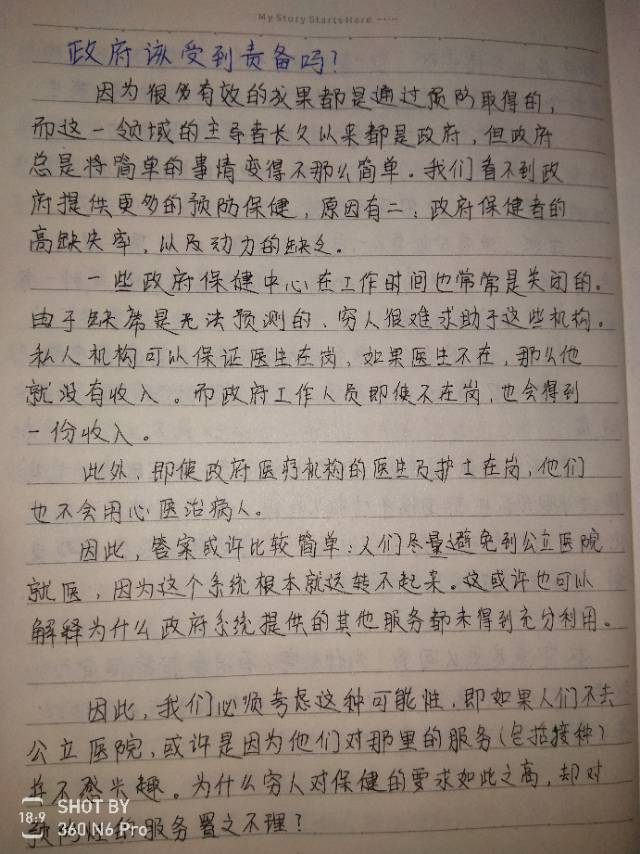 My Story Starts Here ·····
政府该受到责备吗？
因为很多有效的成果都是通过预防取得的，
而这一领域的主导者长久以来都是政府，但政府
总是将简单的事情变得不那么简单。我们看不到政
府提供更多的预防保健，原因有二：政府保健者的
高缺失率，以及动力的缺乏。
一些政府保健中心在工作时间也常常是关闭的。
由于缺席是无法预测的、穷人很难求助于这些机构。
私人机构可以保证医生在岗，如果医生不在，那么他
就没有收入。而政府工作人员即使不在岗，也会得到
一份收入。
此外，即使政府医疗机构的医生及护士在岗，他们
也不会用心医治病人。
因此，答案或许比较简单：人们尽量避免到公立医院
就医，因为这个系统根本就运转不起来。这或许也可以
解释为什么政府系统提供的其他服务都未得到充分利用。
因此，我们必须考虑这种可能性，即如果人们不去
公立医院，或许是因为他们对那里的服务（包括接种）
并不感兴趣。为什么穷人对保健的要求如此之高，却对
预防性的服务置之不理？
18:9
SHOT BY
360 N6 Pro